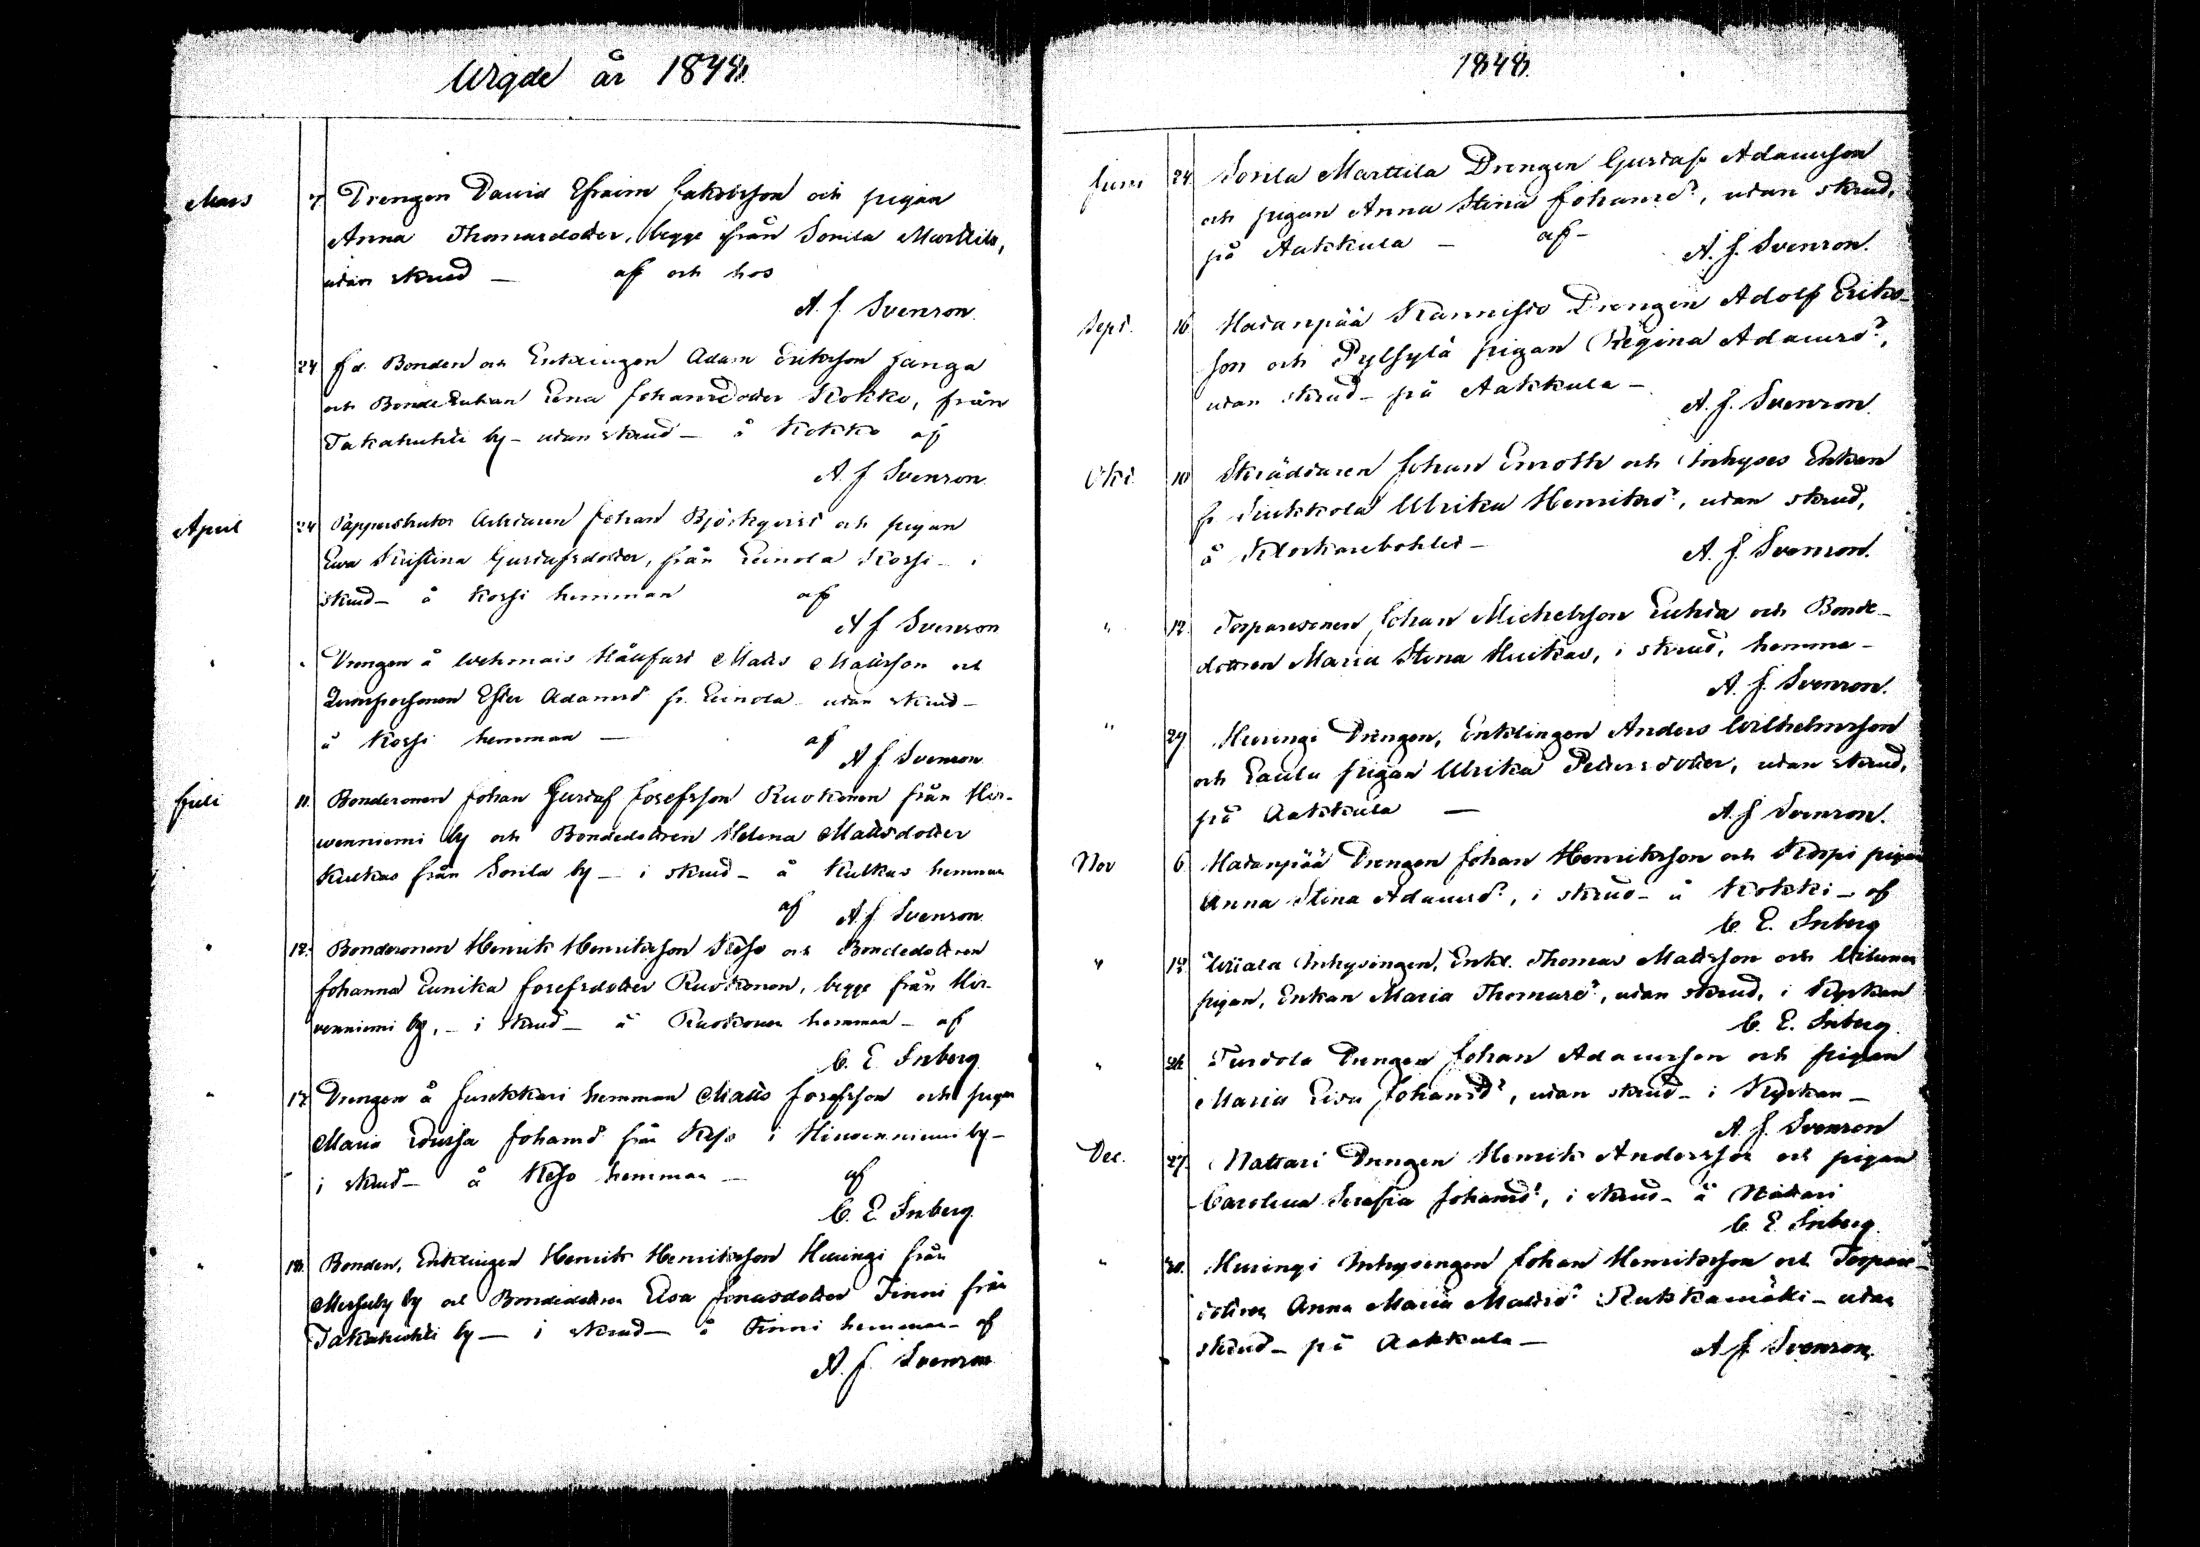 Wigde år 1848.
Mars 7 Drengen David Efraim Jakobsson och pigan
Anna Thomasdotter, begge från Sorila Marttila,
utan skrud — af och hos
A. J. Svenson.
24 fd. Bonden och Enklingen Adam Eriksson Janga
och Bonde Enkan Lena Johansdotter Kokko, från
Takahuhti by – utan skrud – å Kokko af
A. J. Svenson.
April 24 Johan Björkqvist och pigan
Eva Kristina Gustafsdotter, från Leinola Kossi – i
skrud – å Kossi hemman af
A J Svenson
" " Drengen å Matts Mattsson och
Qvinspersonen Ester Adamsd fr. Leinola utan skrud –
å Kossi hemman — af
A J Svenson
Juli 11 Bondesonen Johan Gustaf Josefsson Ruokonen från Hir-
venniemi by och Bondedottren Helena Mattsdotter
Kulkas från Sorila by – i skrud – å Kulkas hemman
af A. J Svenson.
" 12. Bondesonen Henrik Henriksson Keso och Bondedottren
Johanna Eunika Josefsdotter Ruokonen, begge från Hir-
venniemi by, – i skrud – å Ruokonen hemman – af
C. E Inberg.
" 17. Drengen å Junkkari hemman Matts Josefsson och pigan
Maria Johansd från Keso i Hirvenniemi by –
i skrud – å Keso hemman — af
C. E. Inberg.
" 18. Bonden, Enklingen Henrik Henriksson Huringi från
Messuby by och Bondedottren Lisa Jonasdotter Finni från
Takahuhti by — i skrud — å Finni hemman – af
A. J. Svenson
1848.
Juni 24 Sorila Marttila Drengen Gustaf Adamsson
och pigan Anna Stina Johansd., utan skrud,
på Aakkula – af –
A. J. Svenson.
Sept. 16 Hatanpää Kannisto Drengen Adolf Eriks-
son och Pylsylä pigan Regina Adamsd.,
utan skrud – på Aakkula –
A. J. Svenson.
Okt. 10 Skräddaren Johan Enroth och Inhyses Enkan
fr Ulrika Henriksd., utan skrud,
å Klockarebohlet –
A. J. Svenson.
" 12. Torparesonen Johan Michelsson och Bonde-
dottren Maria Stina Huikas, i skrud, hemma –
A. J. Svenson.
" 29 Huringi Drengen, Enklingen Anders Wilhelmsson
och pigan Ulrika Pettersdotter, utan skrud,
på Aakkula —
A. J Svenson.
Nov 6 Hatanpää Drengen Johan Henriksson och Korpi pigan
Anna Stina Adamsd., i skrud – å Kokki – af
C. E. Inberg
" 12 Inhysingen, Enkl. Thomas Mattsson och
pigan, Enkan Maria Thomasd., utan skrud, i Kyrkan
C. E. Inberg.
" 26 Turtola Drengen Johan Adamsson och pigan
Maria Lisa Johansd., utan skrud – i Kyrkan –
A. J. Svenson
Dec. 27. Nattari Drengen Henrik Andersson och pigan
Carolina Serafia Johansd., i skrud – å Nattari
C. E. Inberg.
" 30. Huringi Inhysingen Johan Henriksson och Torpare-
dottren Anna Maria Mattsd. Rukkamäki – utan
skrud – på Aakkula –
A. J. Svenson.